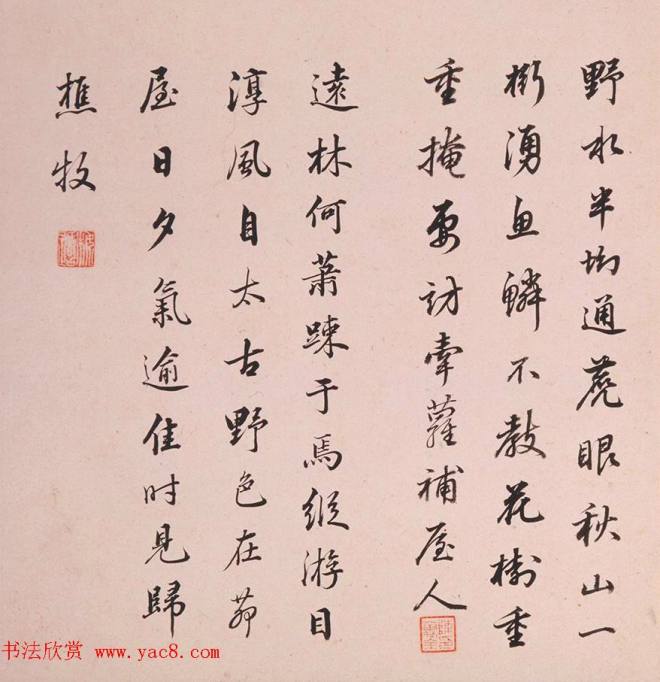 野水半坳通麂眼秋山一
桁湧魚鱗不教花樹重
重掩要訪牽蘿補屋人
遠林何蕭踈于焉縱游目
淳風自太古野色在茆
屋日夕氣逾佳時見歸
樵牧
书法欣赏 www.yac8.com